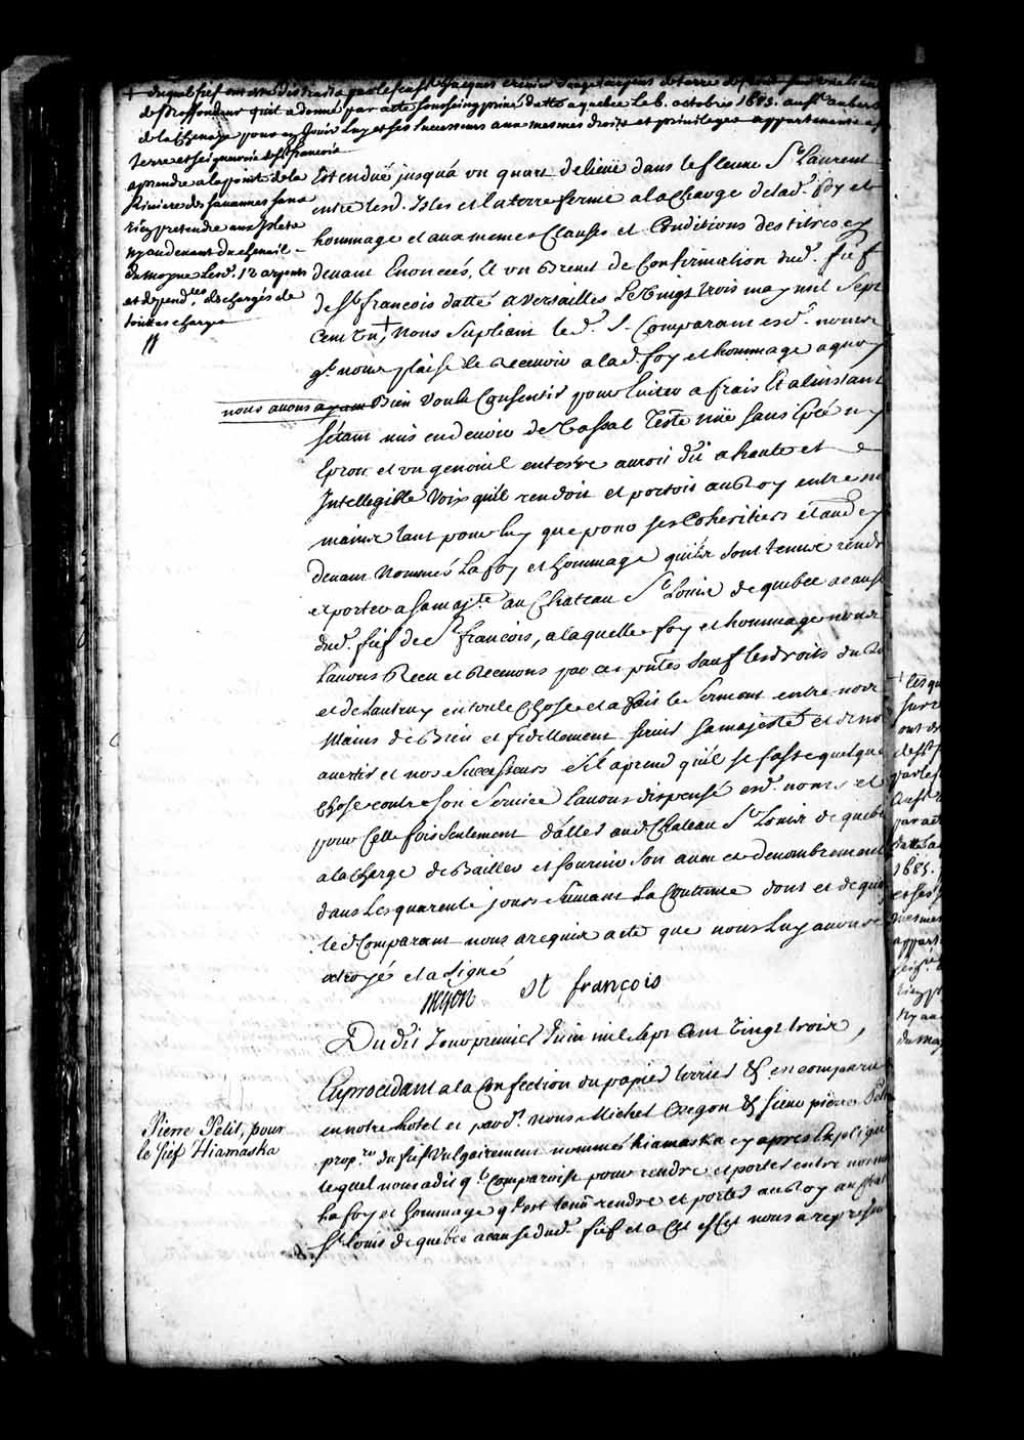 + duquel fief ont esté distraits par le feu Sr. Jacques Crevier douze arpens de terre de
de profondeur qu'il a donné par acte sous seing privé datté a quebec le 6. octobre 1685. au Sr. aubert
de la Chenaye pour en Jouir luy et ses successeurs aux mesmes droits et privileges appartenants a
terre et seigneurie de St. francois
a prendre a la pointe de la
Riviere des savannes sans
rien pretendre aux Islets
ny au devant du chenail
du moyne lesd. 12 arpents
et depend.ces dechargés de
toutes charges
Estendue jusqu'a un quart de lieüe dans le fleuve St. Laurent
entre lesd. Isles et la terre ferme a la charge de lad. foy et
hommage et aux memes Clauses et Conditions des titres cy
devant Enoncés, et un Brevet de Confirmation dud. fief
de St. francois datté a Versailles le vingt trois may mil sept
Cent un,+ Nous supliant led. S. Comparant esd. noms
qu'il nous plaise le Recevoir a lad. foy et hommage a quoy
nous avons ayant Bien voulu Consentir pour Eviter a frais Et a l'instant
s'étant mis en devoir de Vassal Teste nüe sans Epée ny
Eperon et un genouil en terre auroit dit a haute et
Intellegible Voix qu'il rendoit et portoit au Roy entre nos
mains tant pour luy que pour ses Coheritiers etaud. cy
devant Nommés La foy et hommage qu'ils sont tenus rendre
et porter a sa maj.té au Chateau St. Louis de quebec a cause
dud. fief de St. francois, a laquelle foy et hommage nous
L'avons Receu et Recevons par ces pntes sauf les droits du Roy
et de L'autruy en toute Chose et a fait le Serment entre nos
Mains de Bien et fidellement servir sa majesté et de nous
avertir et nos Successeurs s'il aprend qu'il se fasse quelque
Chose contre son Service L'avons dispensé esd. noms et
pour Cette fois seulement d'aller aud. Chateau St. Louis de quebec
a la Charge de Bailler et fournir son aveu et denombrement
dans les quarente jours suivant La Coutume dont et de quoy
led. Comparant nous a requis acte que nous Luy avons
octroyé et a signé
Begon St françois
Du dit Jour premier Juin mil sept Cent vingt trois,
En procedant a la Confection du papier terrier &. est comparu
en notre hotel et pard.t Nous Michel Begon & sieur pierre Petit
prop.re du fief Vulgairement nommé hiamaska cy apres Expliqué
lequel nous a dit q'l Comparoist pour rendre et porter entre nos mains
La foy et hommage q'l est tenu rendre et porter au Roy au Chateau
St. Louis de quebec a cause dud. fief et a Cet effet nous a representé
Pierre Petit, pour
le fief Hiamaska
1685.